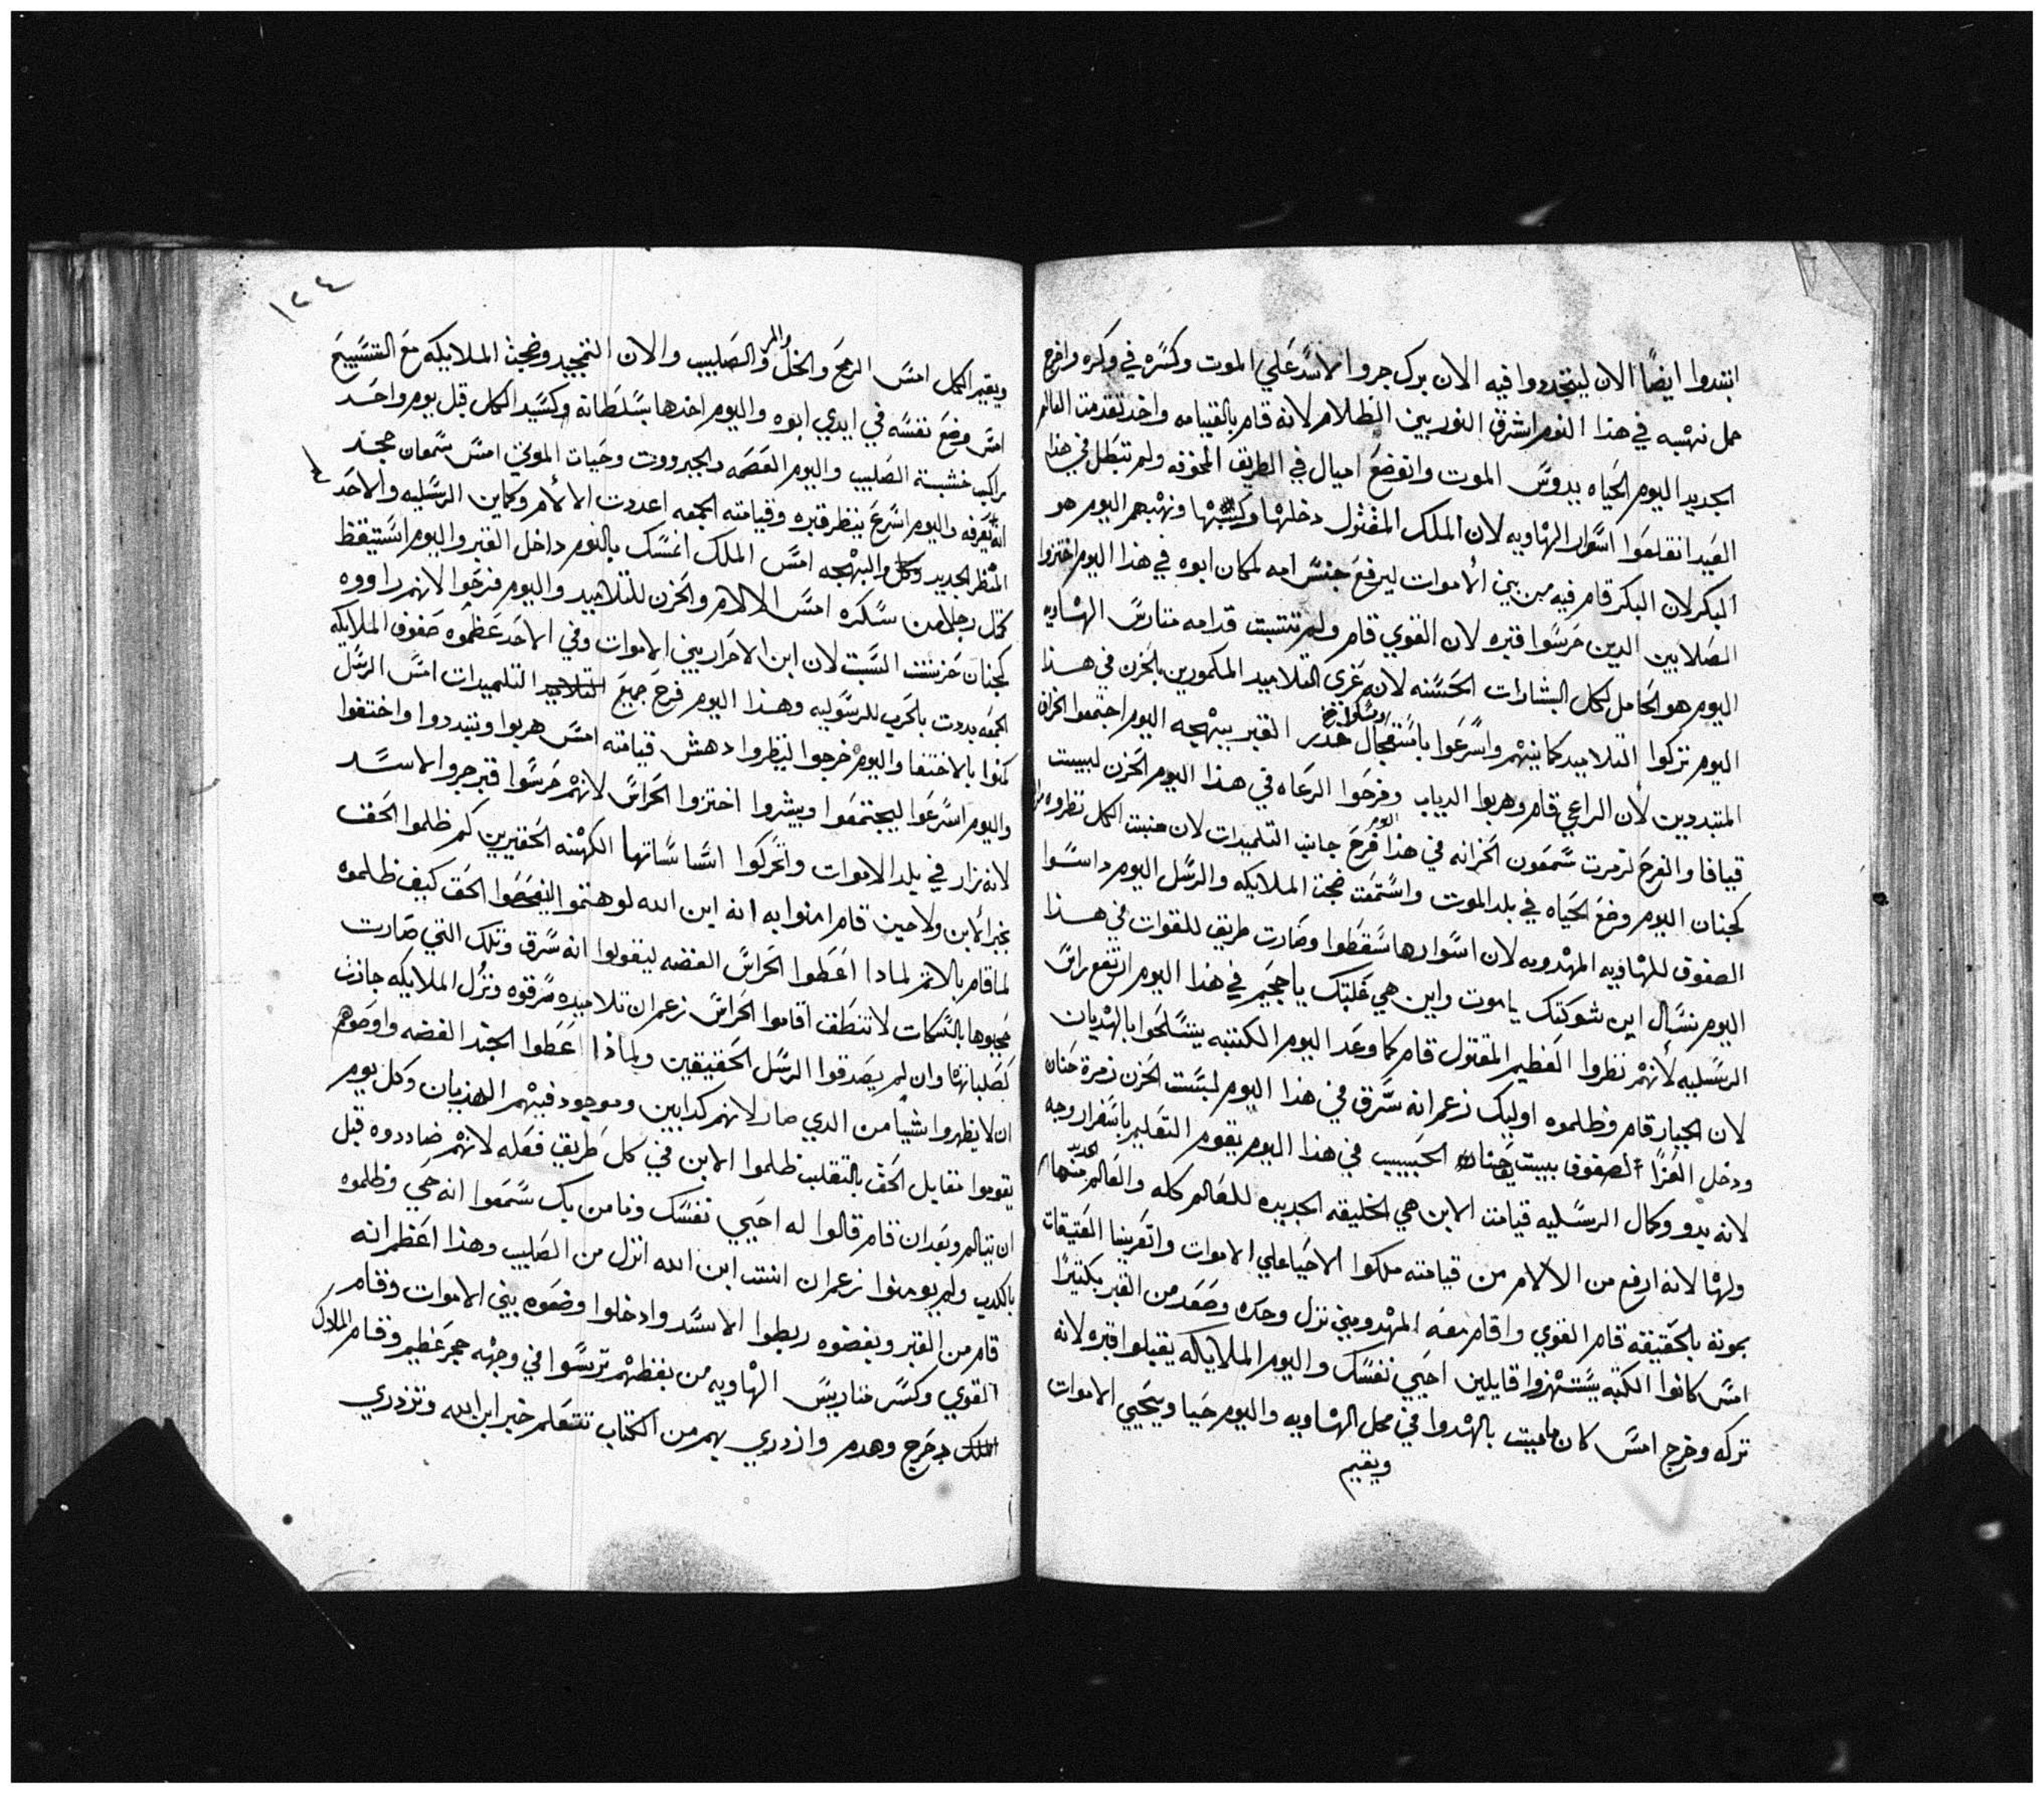 ابتدوا ايضًا الان ليتجددوا فيه الان برك جرو الاسد علي الموت وكسره في وكره واخرج
حمل نهبه في هذا اليوم اشرق النور بين الظلام لانه قام بالقيامه واخد تقدمت العالم
الجديد اليوم الحياه بدوس الموت واتوضع اميال في الطريق المخوفه ولم تبطل في هذا
العيد انقلعوا اسوار الهاويه لان الملك المقتول دخلها ونهبهم اليوم هو
البكر لان البكر قام فيه من بين الاموات ليرفع جنس امه لمكان ابوه في هذا اليوم اختزوا
الصلابين الدين حرسوا قبره لان القوي قام ولم تتتبت قدامه متارس الهاويه
اليوم هو الحامل لكل البشارات الحسنه لانه عزي التلاميد المكمورين بالحزن في هذا
اليوم تركوا التلاميد كمانيتهم واسرعوا باستعجال القبر ببهجه اليوم اجتمعوا الخراف
المتبددين لان الراعي قام وهربوا الدياب وفرحوا الرعاه في هذا اليوم الحزن لبيت
قيافا والفرح لزمرت سمعون الخزانه في هذا اليوم فرح جانب التلميدات لان منبت الكل نظروه
كجنان اليوم وضع الحياه في بلد الموت واستمعت ضجت الملايكه والرسل اليوم داسوا
الصفوف للهاويه المهدومه لان اسوارها سقطوا وصارت طريق للقوات في هذا
اليوم نسال اين شوكتك يا موت واين هي غلبتك يا جحيم في هذا اليوم ارتفع راس
الرسليه لانهم نظروا العظيم المقتول قام كما وعد اليوم الكتبه يتسلحوا بالهديان
لان الجبار قام وظلموه اوليك زعم انه سرق في هذا اليوم لبست الحزن زمرة حنان
ودخل العزا لصفوف بيت الحبيب في هذا اليوم يقوم التعليم باسفرار وجه
لانه يدو وكمال الرسليه قيامت الابن هي الخليقه الجديده للعالم كله والعالم
ولها لانه ارفع من الالام من قيامته ملكوا الاحيا علي الاموات واتعرينا العتيقات
بموته بالحقيقه قام القوي واقام معه المهدومين نزل وحده وصعد من القبر بكتيرًا
امس كانوا الكتبه يستهزوا قايلين احيي نفسك واليوم الملايكه يقبلوا قبره لانه
تركه وخرج امس كان مايت بالهدوا في محل الهاويه واليوم حيا ويحيي الاموات
ويقيم
١٢٤
ويقيم الكل امس الرمح والخل والمر والصليب والان التمجيد وضجت الملايكه مع التسبيح
امس وضع نفسه في ايدي ابوه واليوم اخدها بسلطانه وكسيد الكل قبل يوم واحد
راكب خشبة الصليب واليوم العصمه والجبرووت وحيات الموتي امس سمعان جحد
انه يعرفه واليوم اسرع ينظر قبره وقيامته الجمعه اعددت الالام وكماين الرسليه والاحد
المنظر الجديد وكل البهجه امس الملك انمسك بالنوم داخل القبر واليوم استيقظ
كمتل رجل من سكره امس الالام والحزن للتلاميد واليوم فرحوا لانهم راووه
كجنان حرست السبت لان ابن الاحرار بين الاموات وفي الاحد عظموه صفوف الملايكه
الجمعه بددت بالحرب للرسوليه وهذا اليوم فرح جميع التلميدات امس الرسل
كمنوا بالاختفا واليوم خرجوا لينظروا دهش قيامته امس هربوا وتبددوا واختفوا
واليوم اسرعوا ليجتمعوا ويبشروا اختزوا الحراس لانهم حرسوا قبر جرو الاسد
لانه زار في بلد الاموات واتحركوا اساساتها الكهنه الحقيرين كم ظلموا الحق
بخبر الابن ولا حين قام امنوا به انه ابن الله لوهتموا ليفحصوا الحق كيف ظلموه
لما قام بالاتم لمادا اعطوا الحراس الفضه ليقولوا انه سرق وتلك التي صارت
مجبوها بالسكات لا تنطق اقاموا الحراس زعم ان تلاميده سرقوه ونزل الملايكه جازت
كصلبانها وان لم يصدقوا الرسل الحقيقين ولماذا اعطوا الجند الفضه واوصوهم
ان لا يظهروا شيا من الدي صار لانهم كدابين وموجود فيهم الهديان وكل يوم
يقوموا مقابل الحق بالتقلب ظلموا الابن في كل طريق فعله لانهم ضاددوه قبل
ان يتالم وبعد ان قام قالوا له احيي نفسك ونامن بك سمعوا انه حي وظلموه
بالكدب ولم يومنوا زعم ان انت ابن الله انزل من الصليب وهذا اعظم انه
قام من القبر وبغضوه ربطوا الاسد وادخلوا وضعوه بين الاموات وقام
القوي وكسر متاريس الهاويه من بغظتهم ترسوا في وجهه حجر عظيم وقام الملاك
دحرج وهدم وازدري بهم من الكتاب تتعلم خبر ابن الله وتزدري